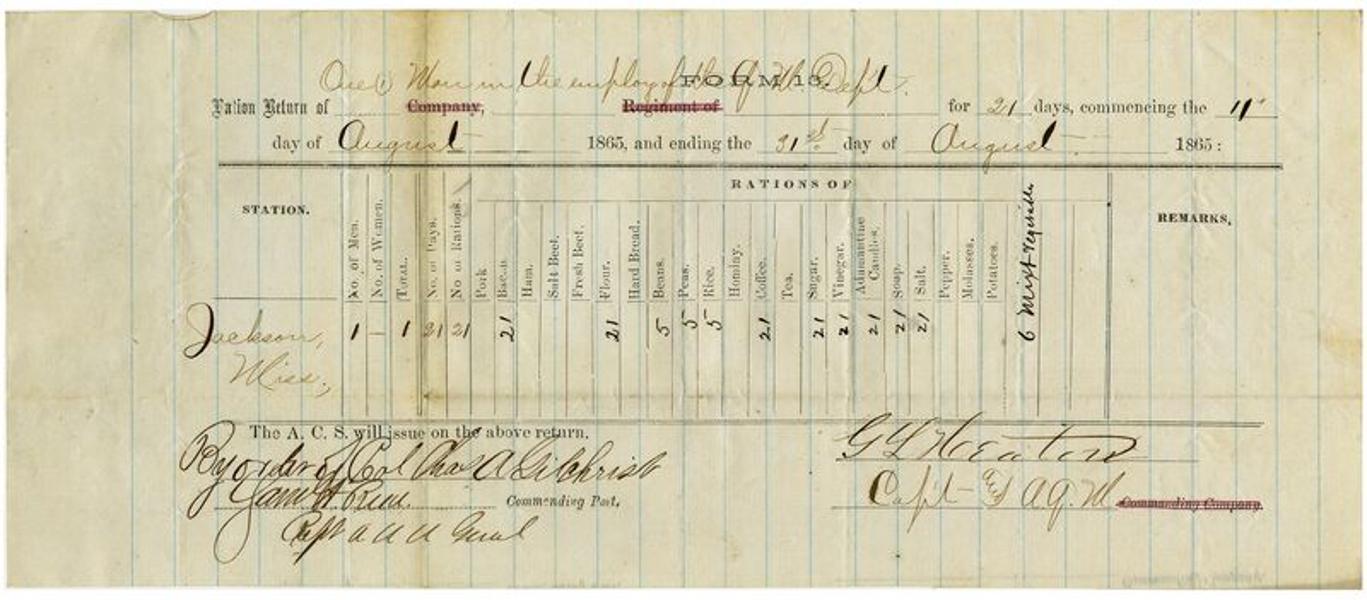 FORM 13.
One (1) Man in the employ of the Q. M. Dept.
Ration Return of Company, Regiment of for 21 days, commencing the 11"
day of August 1865, and ending the 31st day of August 1865:
RATIONS OF
STATION. No. of Men. No. of Women. TOTAL. No. of Days. No of Rations. Pork Bacon. Ham. Salt Beef. Fresh Beef. Flour. Hard Bread. Beans. Peas. Rice. Hominy. Coffee. Tea. Sugar. Vinegar. Adamantine Candles. Soap. Salt. Pepper. Molasses. Potatoes. 6 Mixt Vegetable REMARKS,
Jackson, 1 — 1 21 21 21 21 5 5 5 21 21 21 21 21 21
Miss.,
The A. C. S. will issue on the above return.
By order of Col Chas A Gilchrist
Commending Post.
Capt A A A Genl
Capt and A Q. M Commanding Company.